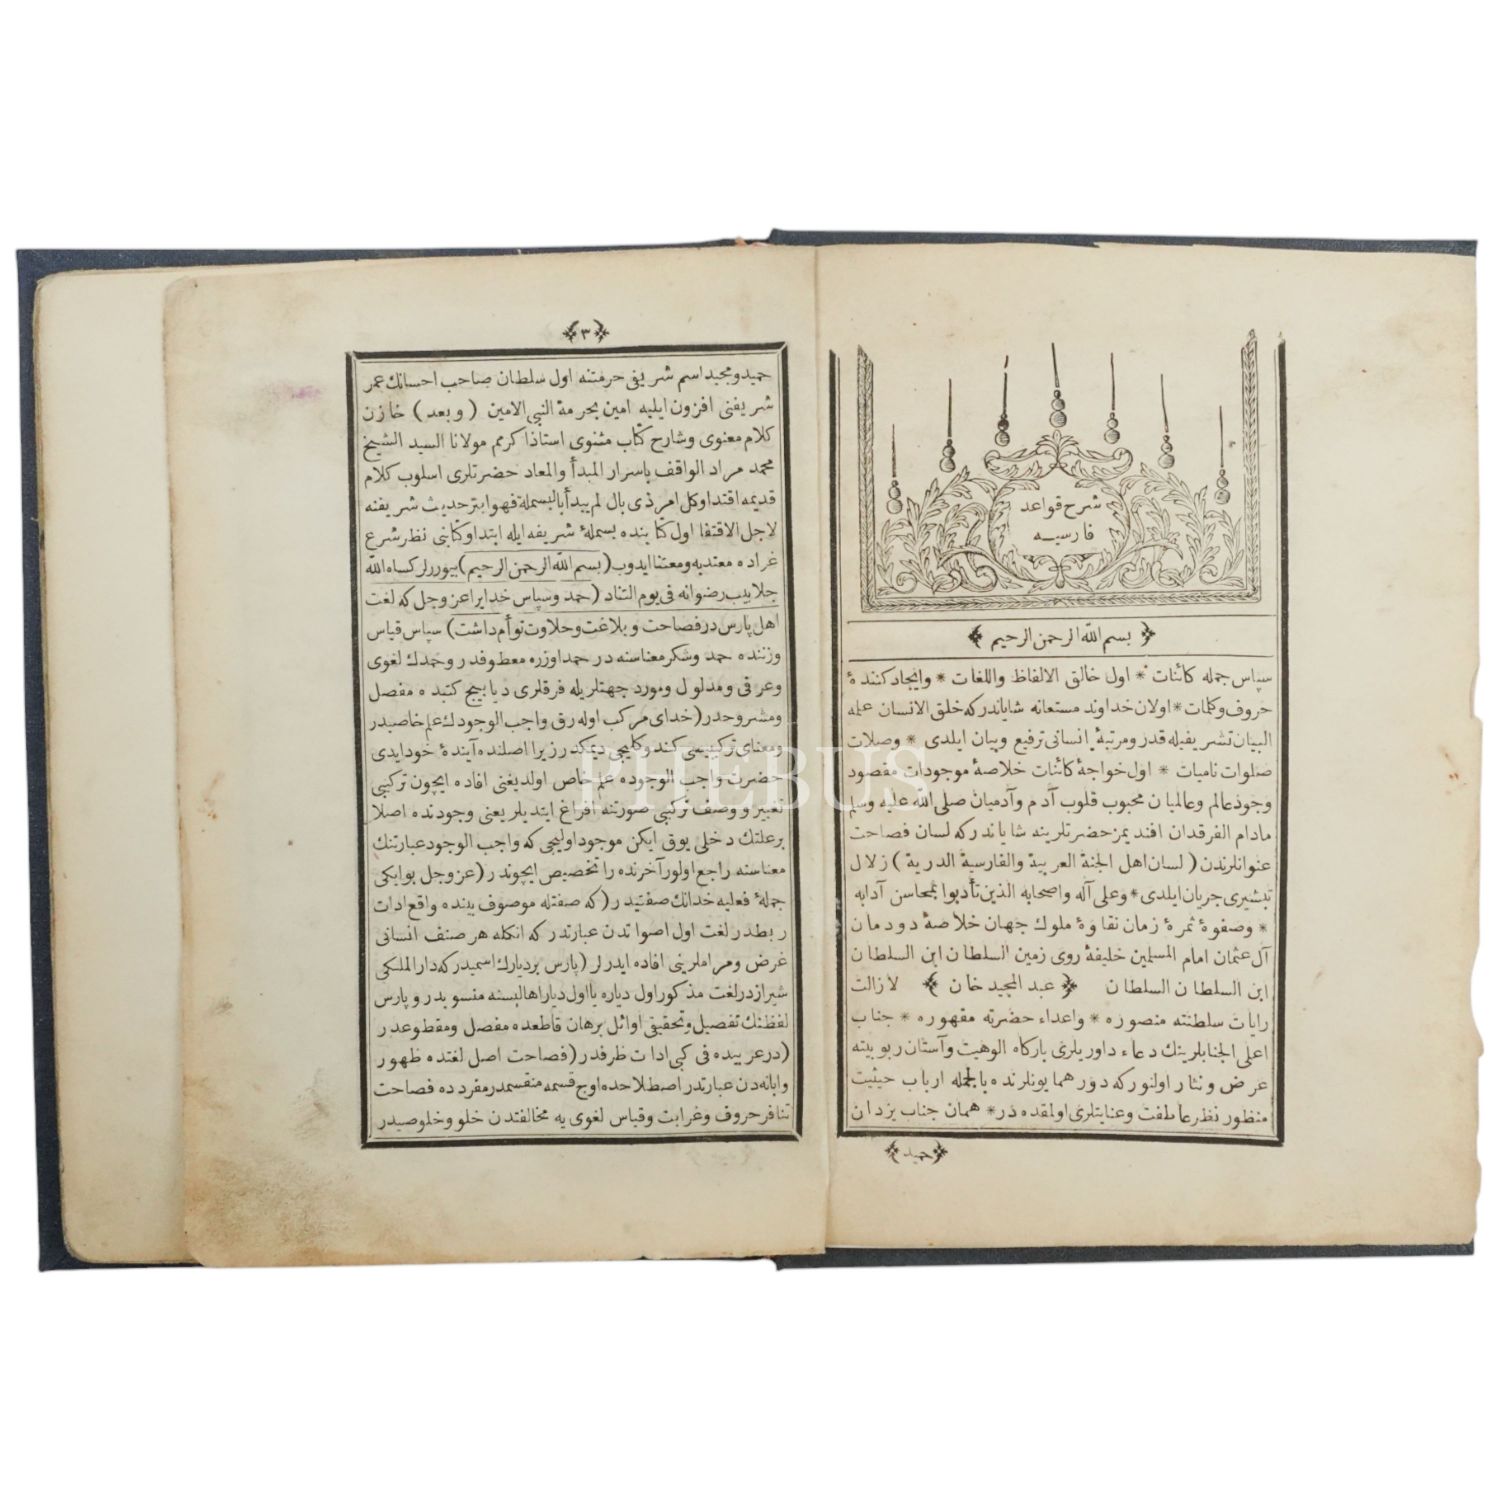 شرح قواعد
فارسيه
بسم الله الرحمن الرحيم
سپاس جمله كائنات * اول خالق الالفاظ واللغات * وايجاد كننده‌ٔ
حروف وكلمات * اولان خداوند مستعانه شاياندركه خلق الانسان علمه
البيان تشريفيله قدر ومرتبهٔ انسانى ترفيع وبيان ايلدى * وصلات
صلوات ناميات * اول خواجهٔ كائنات خلاصهٔ موجودات مقصود
وجود عالم وعالميان محبوب قلوب آدم وآدميان صلى الله عليه وسلم
مادام الفرقدان افنديمز حضرتلرينه شاياندركه لسان فصاحت
عنوانلرندن (لسان اهل الجنة العربية والفارسية الدرية) زلال
تبشيرى جريان ايلدى * وعلى آله واصحابه الذين تأدبوا بمحاسن آدابه
* وصفوهٔ ثمرهٔ زمان نقاوهٔ ملوك جهان خلاصهٔ دودمان
آل عثمان امام المسلمين خليفهٔ روى زمين السلطان ابن السلطان
ابن السلطان السلطان عبد المجيد خان لازالت
رايات سلطنته منصوره * واعداء حضرته مقهوره * جناب
اعلى الجنابلرينك دعاء داوريلرى باركاه الوهيت وآستان ربوبيته
عرض ونثار اولنوركه دور همايونلرنده بالجمله ارباب حيثيت
منظور نظر عاطفت وعنايتلرى اولمقده در * همان جناب يزدان
حميد
٣
حميد ومجيد اسم شريفى حرمتنه اول سلطان صاحب احسانك عمر
شريفنى افزون ايليه امين بحرمة النبى الامين (وبعد) خازن
كلام معنوى وشارح كتاب مثنوى استاذا كرم مولانا السيد الشيخ
محمد مراد الواقف باسرار المبدأ والمعاد حضرتلرى اسلوب كلام
قديمه اقتدا وكل امر ذى بال لم يبدأ بالبسملة فهو ابتر حديث شريفنه
لاجل الاقتفا اول كتابنده بسملهٔ شريفه ايله ابتدا وكتابنى نظر شرع
غراده معتدبه ومعتنا ايدوب (بسم الله الرحمن الرحيم) بيوررلر كساه الله
جلابيب رضوانه فى يوم التناد (حمد وسپاس خدايرا عز وجل كه لغت
اهل پارس در فصاحت وبلاغت وحلاوت توأم داشت) سپاس قياس
وزننده حمد وشكر معناسنه در حمد اوزره معطوفدر وحمدك لغوى
وعرفى ومدلول ومورد جهتلريله فرقلرى ديباجيج كتبده مفصل
ومشروحدر (خداى مركب اوله رق واجب الوجودك علم خاصيدر
ومعناى تركيبيسى كند وكليجى ديمكدر زيرا اصلنده آيندهٔ خود ايدى
حضرت واجب الوجوده علم خاص اولديغنى افاده ايچون تركيبى
تغيير ووصف تركيبى صورتنه افراغ ايتديلر يعنى وجودنده اصلا
بر علتك دخلى يوق ايكن موجود اوليجى كه واجب الوجود عبارتنك
معناسنه راجع اولور آخرنده را تخصيص ايچوندر (عز وجل بو ايكى
جملهٔ فعليه خدانك صفتيدر (كه صفتله موصوف بيننده واقع ادات
ربطدر لغت اول اصواتدن عبارتدر كه انكله هر صنف انسانى
غرض ومراملرينى افاده ايدرلر (پارس بر ديارك اسميدر كه دار الملكى
شيرازدر لغت مذكور اول دياره يا اول ديار اهاليسنه منسوبدر وپارس
لفظنك تفصيل وتحقيقى اوائل برهان قاطعده مفصل ومقطوعدر
(در عربيده فى كبى ادات ظرفدر (فصاحت اصل لغتده ظهور
وابانه دن عبارتدر اصطلاحده اوچ قسمه منقسمدر مفردده فصاحت
تنافر حروف وغرابت وقياس لغوى يه مخالفتدن خلو وخلوصيدر
PHEBUS